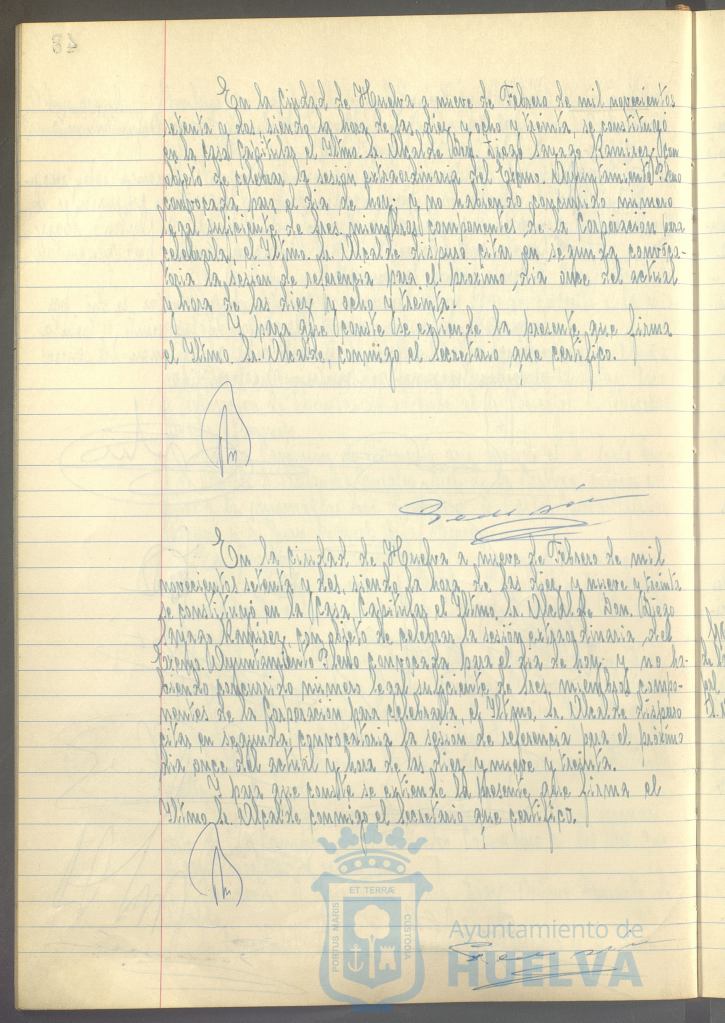 En la Ciudad de Huelva a nueve de Febrero de mil novecientos
setenta y dos, siendo la hora de las diez y ocho y treinta, se constituyó
en la Casa Capitular el Iltmo. Sr. Alcalde Don Diego Sayago Ramírez, con
objeto de celebrar la sesión extraordinaria del Excmo. Ayuntamiento Pleno
convocada para el día de hoy; y no habiendo concurrido número
legal suficiente de Sres. miembros componentes de la Corporación para
celebrarla, el Iltmo. Sr. Alcalde dispuso citar en segunda convoca-
toria la sesión de referencia para el próximo día once del actual
y hora de las diez y ocho y treinta.
Y para que conste se extiende la presente que firma
el Iltmo. Sr. Alcalde, conmigo el Secretario que certifico.
En la ciudad de Huelva a nueve de Febrero de mil
novecientos setenta y dos, siendo la hora de las diez y nueve y treinta
se constituyó en la Casa Capitular el Iltmo. Sr. Alcalde Don Diego
Sayago Ramírez, con objeto de celebrar la sesión extraordinaria, del
Excmo. Ayuntamiento Pleno convocada para el día de hoy; y no ha-
biendo concurrido número legal suficiente de Sres. miembros compo-
nentes de la Corporación para celebrarla, el Iltmo. Sr. Alcalde dispuso
citar en segunda convocatoria la sesión de referencia para el próximo
día once del actual y hora de las diez y nueve y treinta.
Y para que conste se extiende la presente que firma el
Iltmo. Sr. Alcalde conmigo el Secretario que certifico.
PORTUS MARIS ET TERRÆ CUSTODIA
Ayuntamiento de
HUELVA